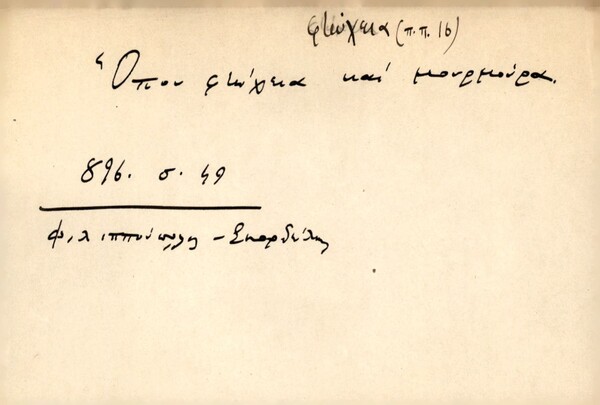 φτώχεια (π.π. 16)
Ὅπου φτώχεια καί μουρμούρα.
896. σ. 49
Φιλιππούπολις - Σκορδέλης